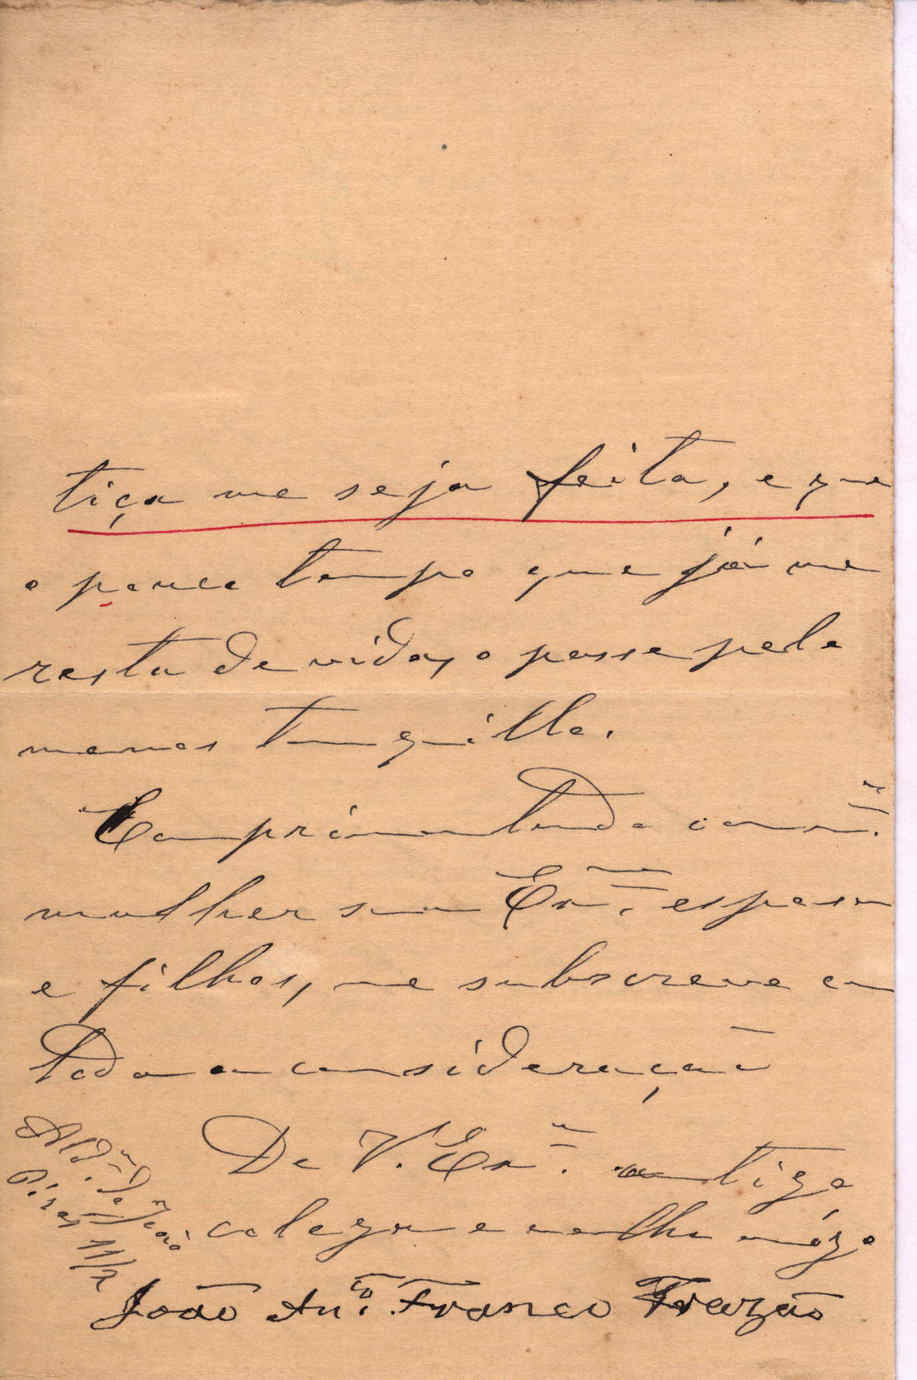 tiça me seja feita, e que
o pouco tempo que já me
resta de vida, o passe pelo
menos tranquillo.
Comprimentando com m.ª
mulher sua Ex.ma esposa
e filhos, me subscreve com
toda a consideração
De V. Ex.ª antigo,
collega e velho amigo
João Ant.º Franco Frazão
Ald.ª de João
Pires 11/2